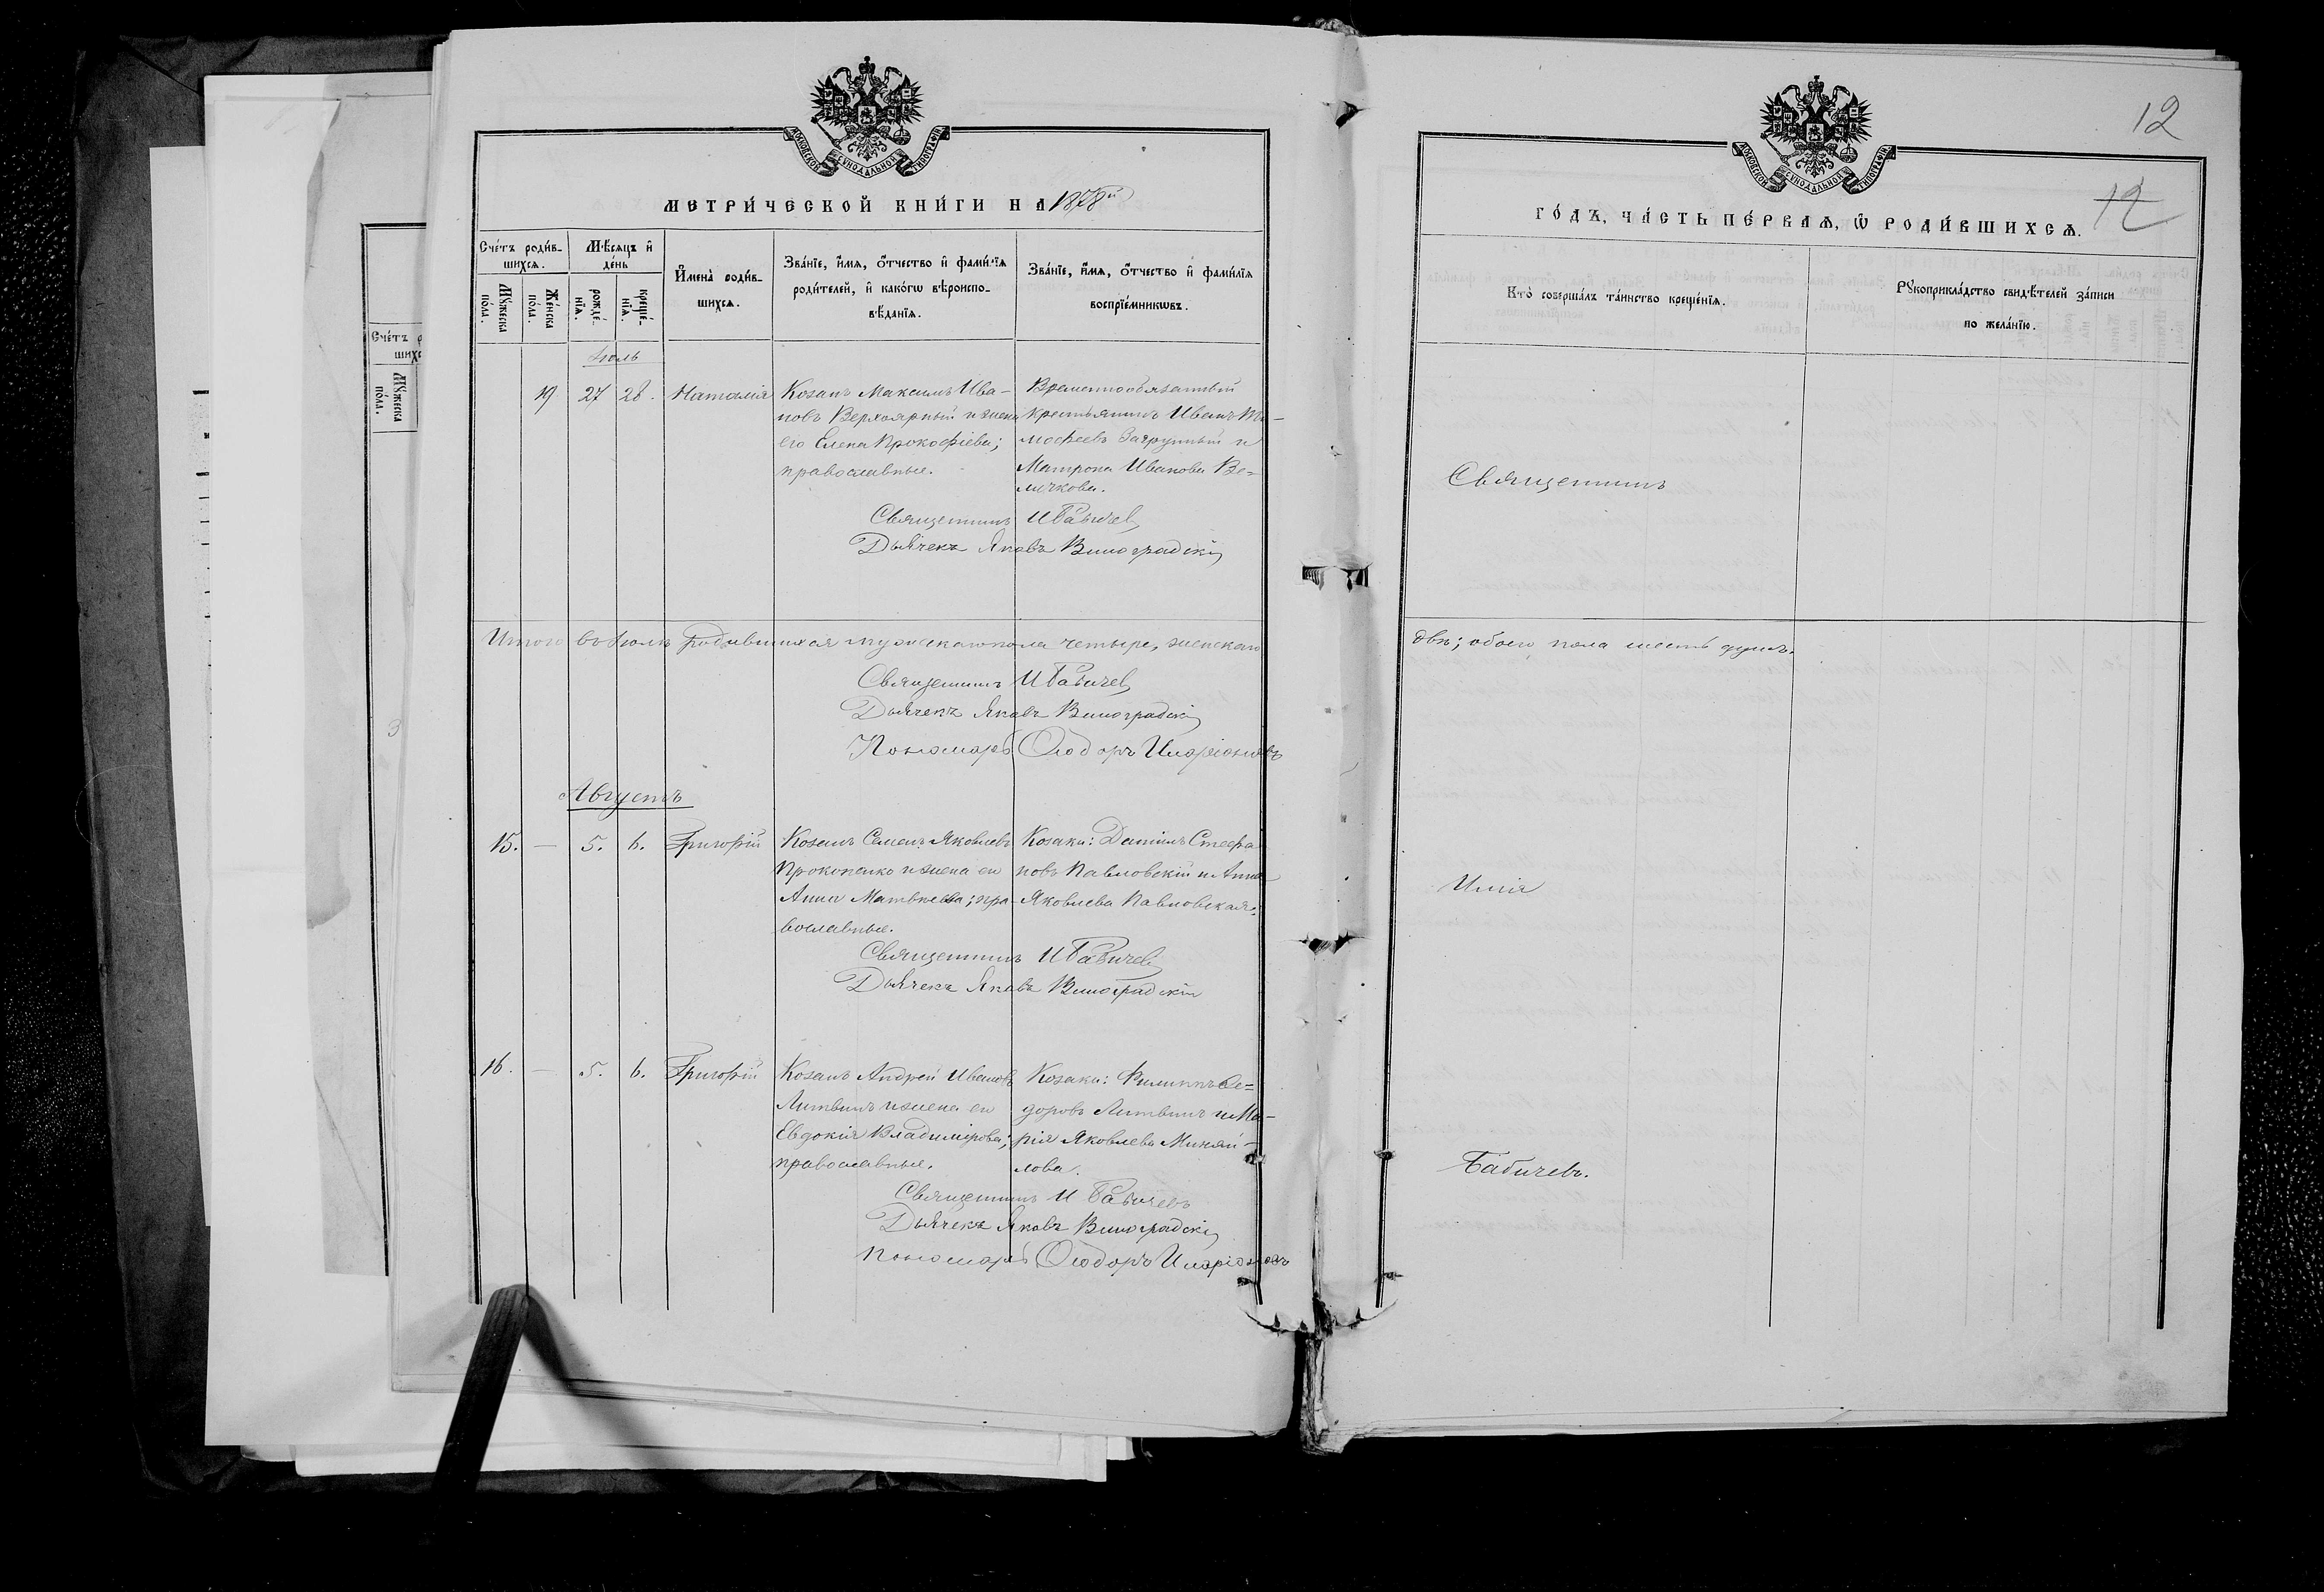 МОСКОВСКОЙ СѴНОДАЛЬНОЙ ТИПОГРАФІИ
МЕТРИ́ЧЕСКОЙ КНИ́ГИ НА 1878й
Сче́тъ роди́в-
шихсѧ.
Мѣ́сяцъ и҆
де́нь
Мꙋ́жеска
по́ла.
Же́нска
по́ла.
рожде́-
нїѧ.
креще́-
нїѧ.
И҆мена̀ роди́в-
шихсѧ.
Зва́нїе, и҆́мѧ, ѻ҆́тчество и҆ фами́лїѧ
роди́телей, и҆ како́гѡ вѣроиспо-
вѣ́данїѧ.
Зва́нїе, и҆́мѧ, ѻ҆́тчество и҆ фами́лїѧ
воспрїе́мникѡвъ.
Іюль
19 27 28. Наталія
Козакъ Максимъ Ива-
новъ Верхоярный и жена
его Елена Прокофіева;
православные.
Временнообязанный
крестьянинъ Иванъ Ти-
мофеевъ Загрунный и
Матрона Иванова Ве=
личкова.
Священникъ И Бабичев
Дьячекъ Яковъ Виноградскій
Итого въ Іюлѣ родившихся мужскаго пола четыре, женскаго
Священникъ И Бабичев
Дьячекъ Яковъ Виноградскій
Пономарь Ѳеодоръ Иларіоновъ
Августъ
15. — 5. 6. Григорій
Козакъ Семенъ Яковлевъ
Прокопенко и жена его
Анна Матвѣева; пра-
вославные.
Козаки: Даніилъ Стефа
новъ Павловскій и Анна
Яковлева Павловская.
Священникъ И Бабичев
Дьячекъ Яковъ Виноградскій
16. — 5. 6. Григорій
Козакъ Андрей Ивановъ
Литвинъ и жена его
Евдокія Владимірова;
православные.
Козаки: Филиппъ Ѳе=
доровъ Литвинъ и Ма-
рія Яковлева Миняй-
лова.
Священникъ И Бабичевъ
Дьячекъ Яковъ Виноградскій
Пономарь Ѳеодоръ Иларіоновъ
Сче́тъ р
шихс
Мꙋ́жеска
по́ла.
3
12
12
МОСКОВСКОЙ СѴНОДАЛЬНОЙ ТИПОГРАФІИ
ГО́ДЪ, ЧА́СТЬ ПЕ́РВАѦ, Ѽ РОДИ́ВШИХСѦ.
Кто̀ соверша́лъ та́инство креще́нїѧ.
Рꙋкоприкла́дство свидѣ́телей за́писи
по жела́нїю.
Священникъ
двѣ; обоего пола шесть душъ.
Илія
Бабичевъ.